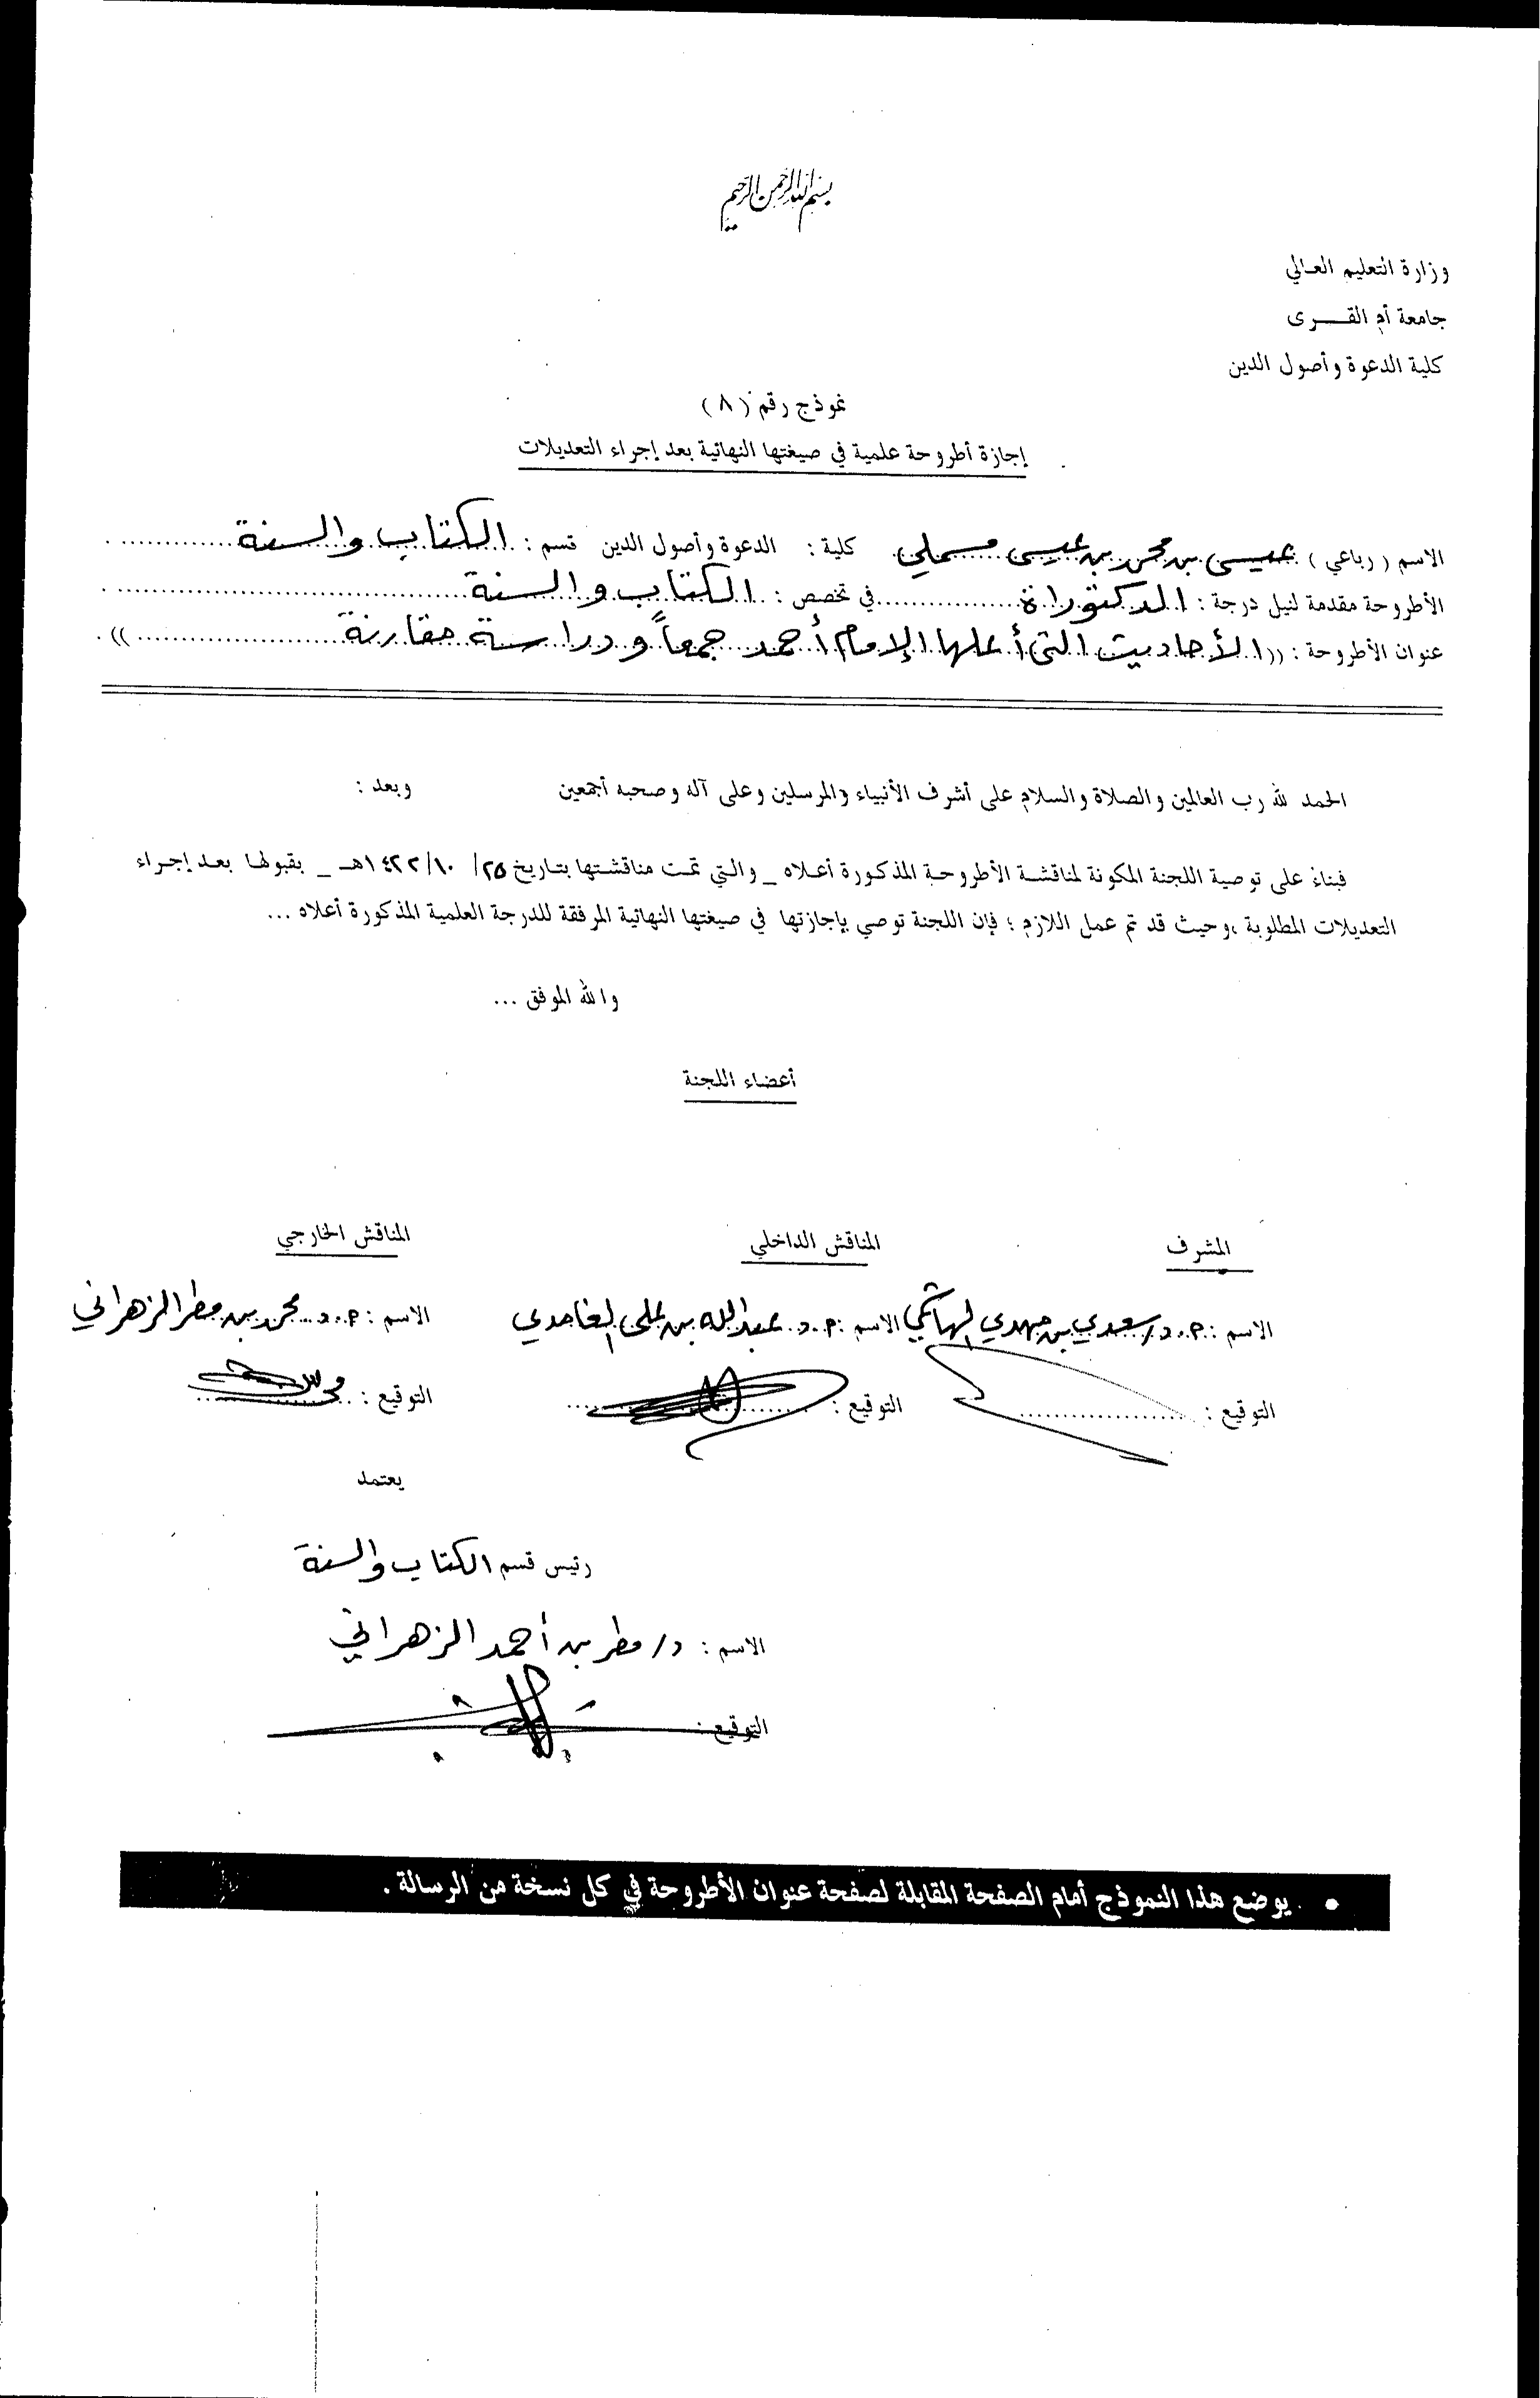 بسم الله الرحمن الرحيم
وزارة التعليم العالي
جامعة أم القــــرى
كلية الدعوة وأصول الدين
نموذج رقم (٨)
إجازة أطروحة علمية في صيغتها النهائية بعد إجراء التعديلات
الاسم ( رباعي ) عيسى بن محمد بن عيسى مسملي كلية : الدعوة وأصول الدين قسم : الكتاب والسنة
الأطروحة مقدمة لنيل درجة : الدكتوراة في تخصص : الكتاب والسنة
عنوان الأطروحة : (( الأحاديث التي أعلها الإمام أحمد جمعاً ودراسة مقارنة ))
الحمد لله رب العالمين والصلاة والسلام على أشرف الأنبياء والمرسلين وعلى آله وصحبه أجمعين وبعد :
فبناءً على توصية اللجنة المكونة لمناقشة الأطروحة المذكورة أعلاه _ والتي تمت مناقشتها بتاريخ ٢٥/ ١٤٢٢/١٠هـ _ بقبولها بعد إجراء
التعديلات المطلوبة ،وحيث قد تم عمل اللازم ؛ فإن اللجنة توصي بإجازتها في صيغتها النهائية المرفقة للدرجة العلمية المذكورة أعلاه ...
والله الموفق ...
أعضاء اللجنة
المشرف المناقش الداخلي المناقش الخارجي
الاسم : أ.د/ سعدي بن مهدي الهاشمي الاسم : أ.د. عبدالله بن علي الغامدي الاسم : أ.د. محمد بن مطر الزهراني
التوقيع : التوقيع : التوقيع :
يعتمد
رئيس قسم الكتاب والسنة
الاسم : د/ مطر بن أحمد الزهراني
التوقيع :
• يوضع هذا النموذج أمام الصفحة المقابلة لصفحة عنوان الأطروحة في كل نسخة من الرسالة .